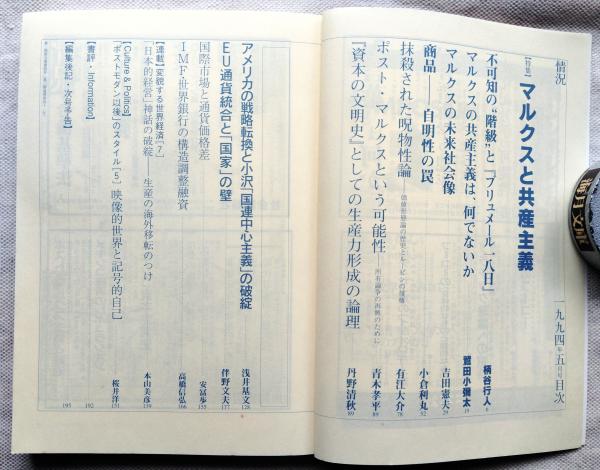 情況
一九九四年五月号目次
【特集】マルクスと共産主義
不可知の“階級”と『ブリュメール一八日』
柄谷行人 6
マルクスの共産主義は、何でないか
鷲田小彌太 19
マルクスの未来社会像
吉田憲夫 29
商品――自明性の罠
小倉利丸 52
抹殺された呪物性論――価値形態論の歴史とルービンの復権
有江大介 78
ポスト・マルクスという可能性――所有論争の再興のために
青木孝平 89
『資本の文明史』としての生産力形成の論理
丹野清秋
アメリカの戦略転換と小沢「国連中心主義」の破綻
浅井基文 128
EU通貨統合と「国家」の壁
伴野文夫 177
国際市場と通貨価格差
安冨歩 155
IMF・世界銀行の構造調整融資
高橋信弘 166
【連載】変貌する世界経済［7］
「日本的経営」神話の破綻――生産の海外移転のつけ
本山美彦 139
【Culture & Politics】
「ポストモダン以後」のスタイル［5］映像的世界と記号的自己
桜井洋 151
【書評・Information】
192
【編集後記・次号予告】
195